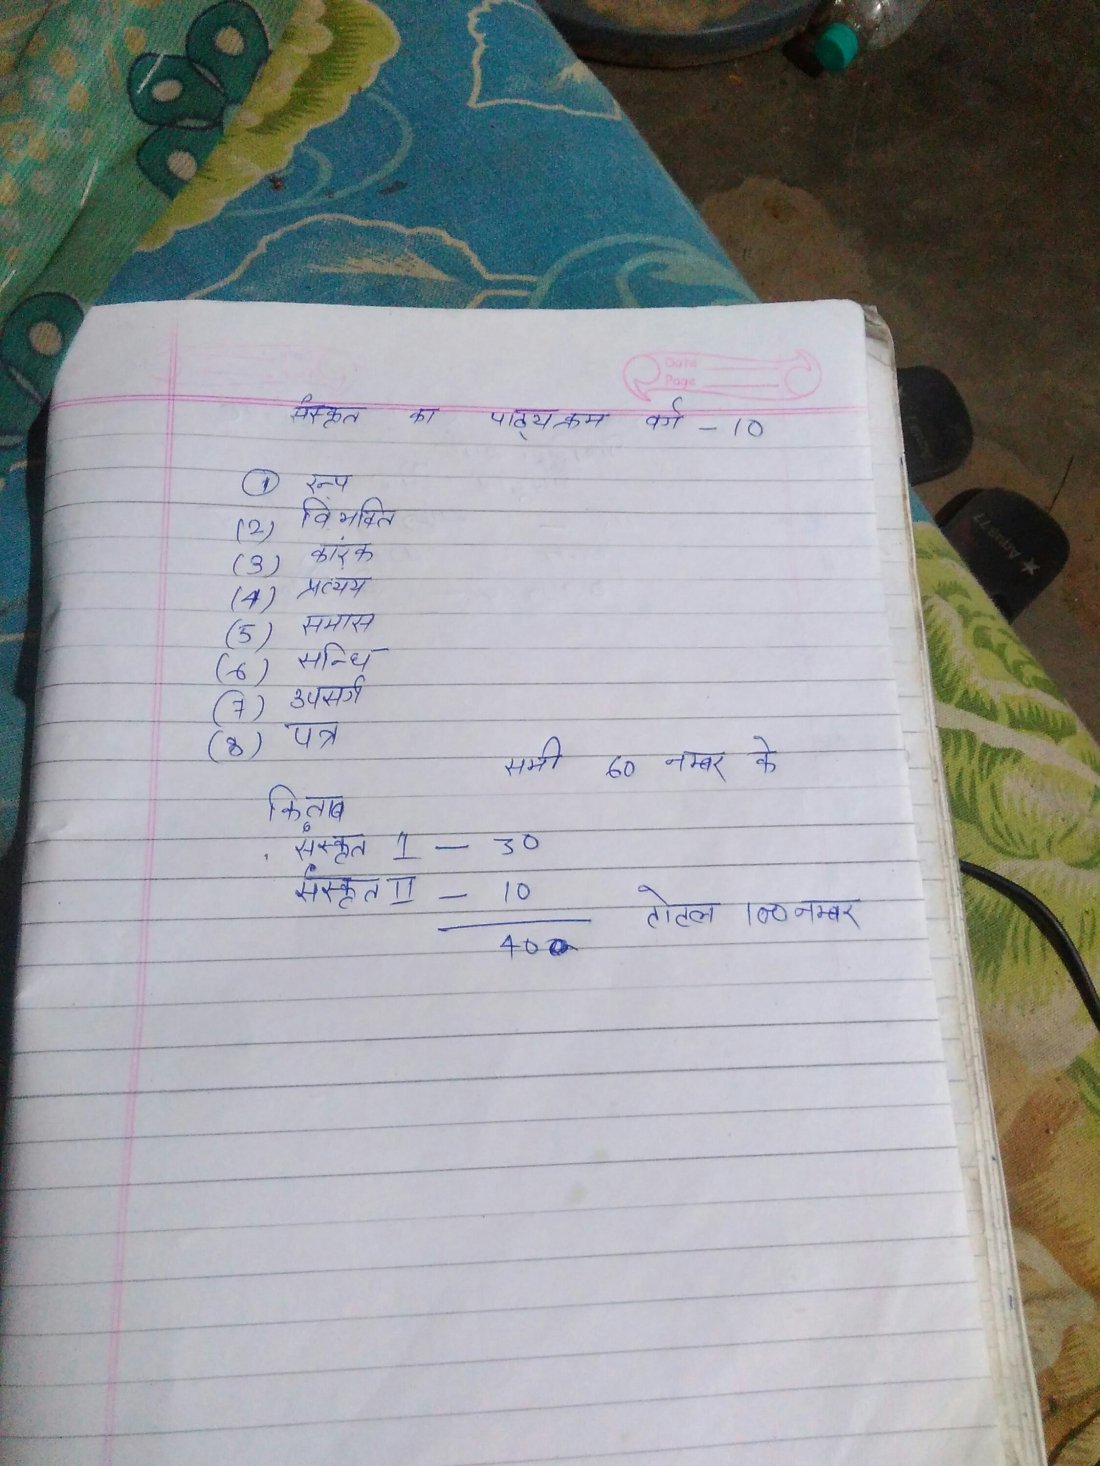 Date
Page
संस्कृत का पाठ्यक्रम वर्ग - 10
(1) रूप
(2) विभक्ति
(3) कारक
(4) प्रत्यय
(5) समास
(6) सन्धि
(7) उपसर्ग
(8) पत्र
सभी 60 नम्बर के
किताब
संस्कृत I - 30
संस्कृत II - 10
40
टोटल 100 नम्बर